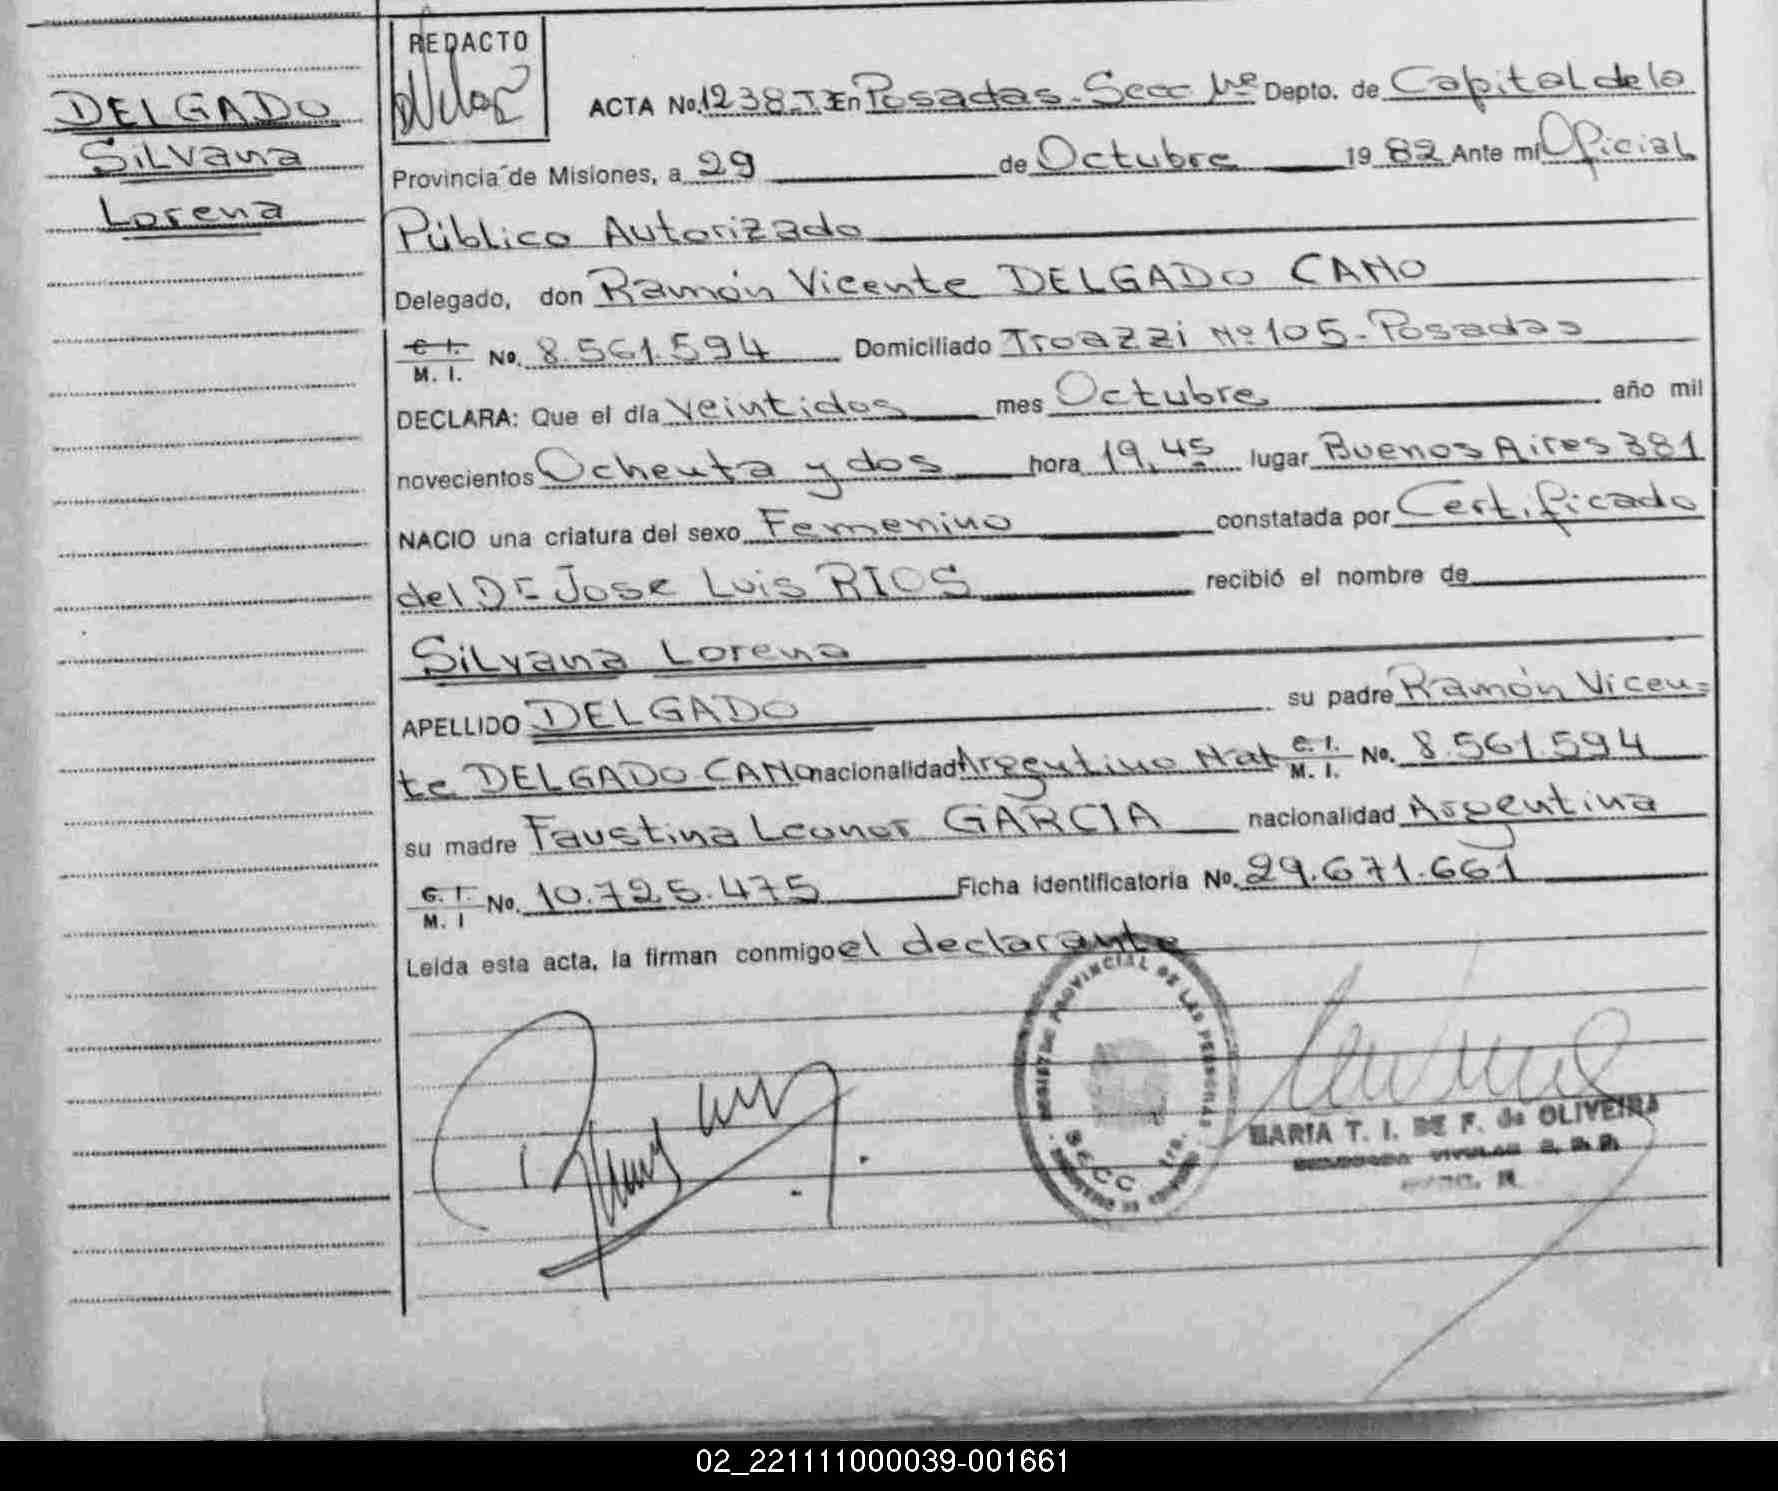 DELGADO
Silvana
Lorena
REDACTO
ACTA No. 1238 T I En Posadas - Secc 1ra Depto. de Capital de la
Provincia de Misiones, a 29 de Octubre 19 82 Ante mi Oficial
Público Autorizado
Delegado, don Ramón Vicente DELGADO CANO
C. I. M. I. No. 8.561.594 Domiciliado Troazzi Nº 105 - Posadas
DECLARA: Que el día veintidos mes Octubre año mil
novecientos Ochenta y dos hora 19,45 lugar Buenos Aires 381
NACIO una criatura del sexo Femenino constatada por Certificado
del Dr Jose Luis RIOS recibió el nombre de
Silvana Lorena
APELLIDO DELGADO su padre Ramón Vicen=
te DELGADO CANO nacionalidad Argentino Nat C. I. M. I. No. 8.561.594
su madre Faustina Leonor GARCIA nacionalidad Argentina
C. I. M. I No. 10.725.475 Ficha identificatoria No. 29.671.661
Leida esta acta, la firman conmigo el declarante
PROVINCIAL DE LAS PERSONAS
SECC 1ra.
MARIA T. I. DE F. de OLIVEIRA
02_221111000039-001661